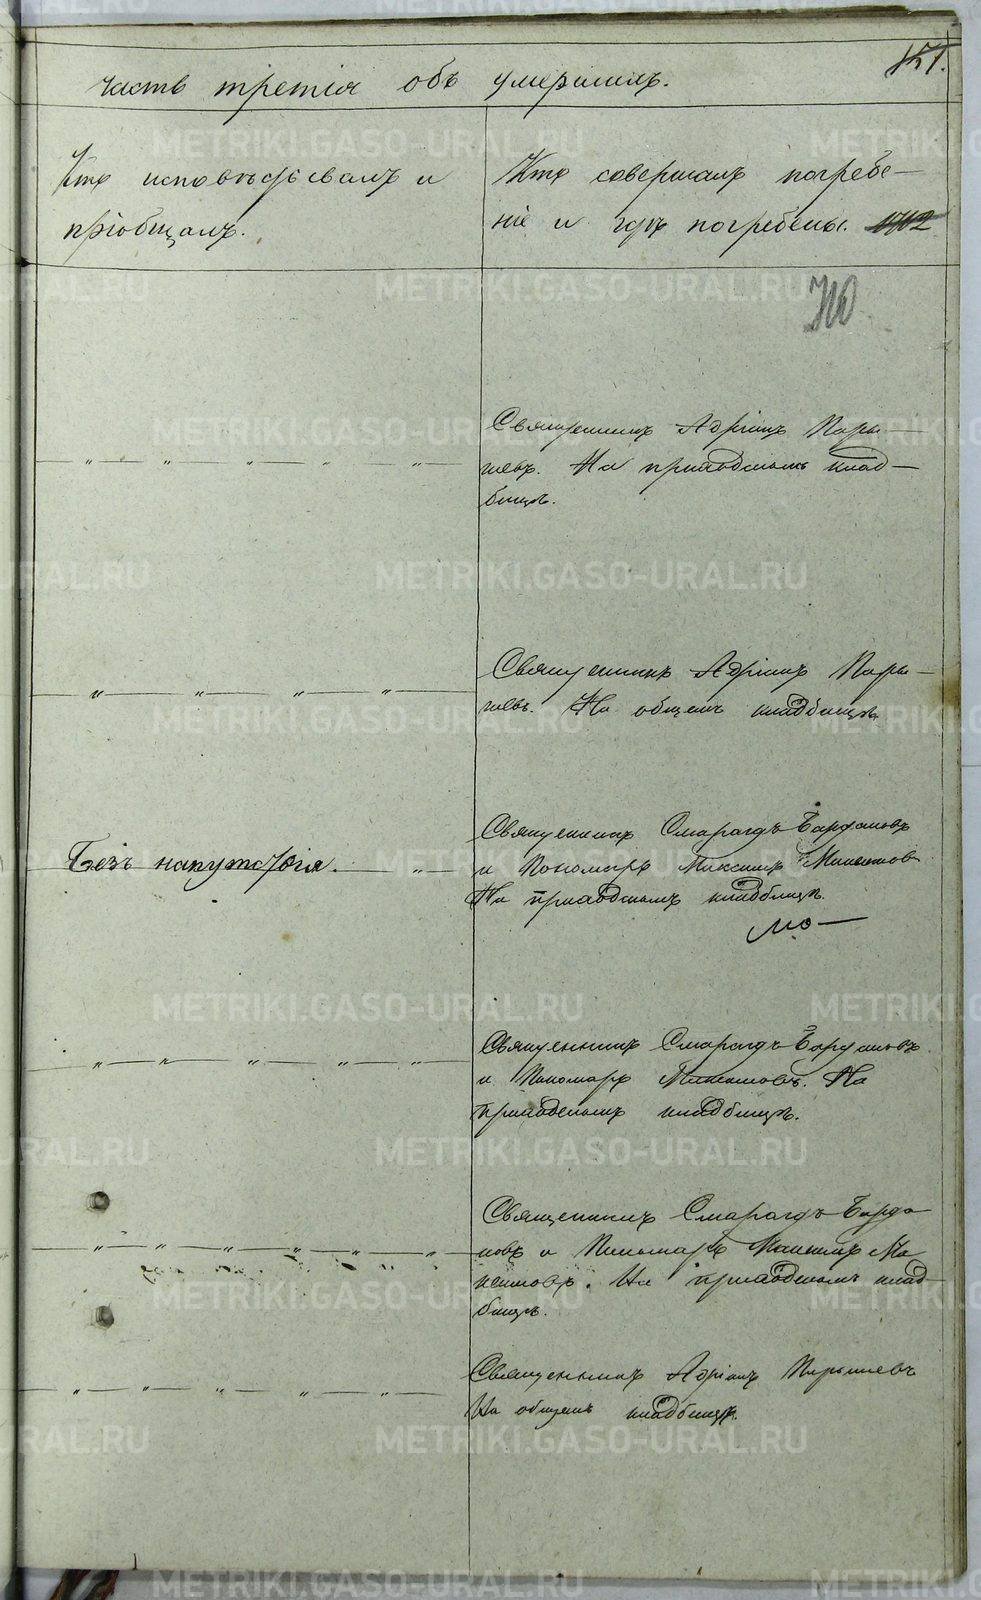 151.
часть третія объ умершихъ.
Кто исповѣдывалъ и
пріобщалъ.
Кто совершалъ погребе-
ніе и гдѣ погребены.
Священникъ Адріанъ Пары-
шевъ. На приходскомъ клад-
бищѣ.
Священникъ Адріанъ Пары-
шевъ. На общемъ кладбищѣ.
Безъ напутствія.
Священникъ Смарагдъ
и Пономарь Максимъ
На приходскомъ кладбищѣ.
Священникъ Смарагдъ
и Пономарь На
приходскомъ кладбищѣ.
Священникъ Смарагдъ
и Пономарь
На приходскомъ клад-
бищѣ.
Священникъ Адріанъ Парышевъ
На общемъ кладбищѣ.
METRIKI.GASO-URAL.RU